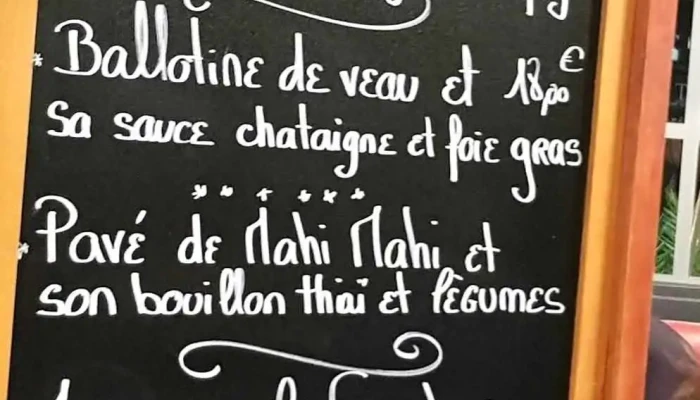 * Ballotine de veau et 18,00 €
sa sauce chataigne et foie gras
* Pavé de Mahi Mahi et
son bouillon thaï et légumes